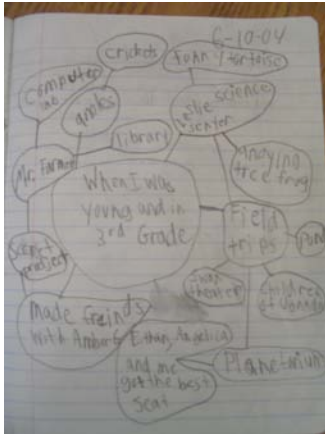 6-10-04
crickets
funny tortoise
computer
lab
apples
Leslie science
senter
library
Mr. Farmer
Annoying
tree frog
When I was
young and in
3rd Grade
Field
trips
pond
secret
project
theater
children
of
made freinds
with Amber
Ethan, Angelica
and me
got the best
seat
Planetarium